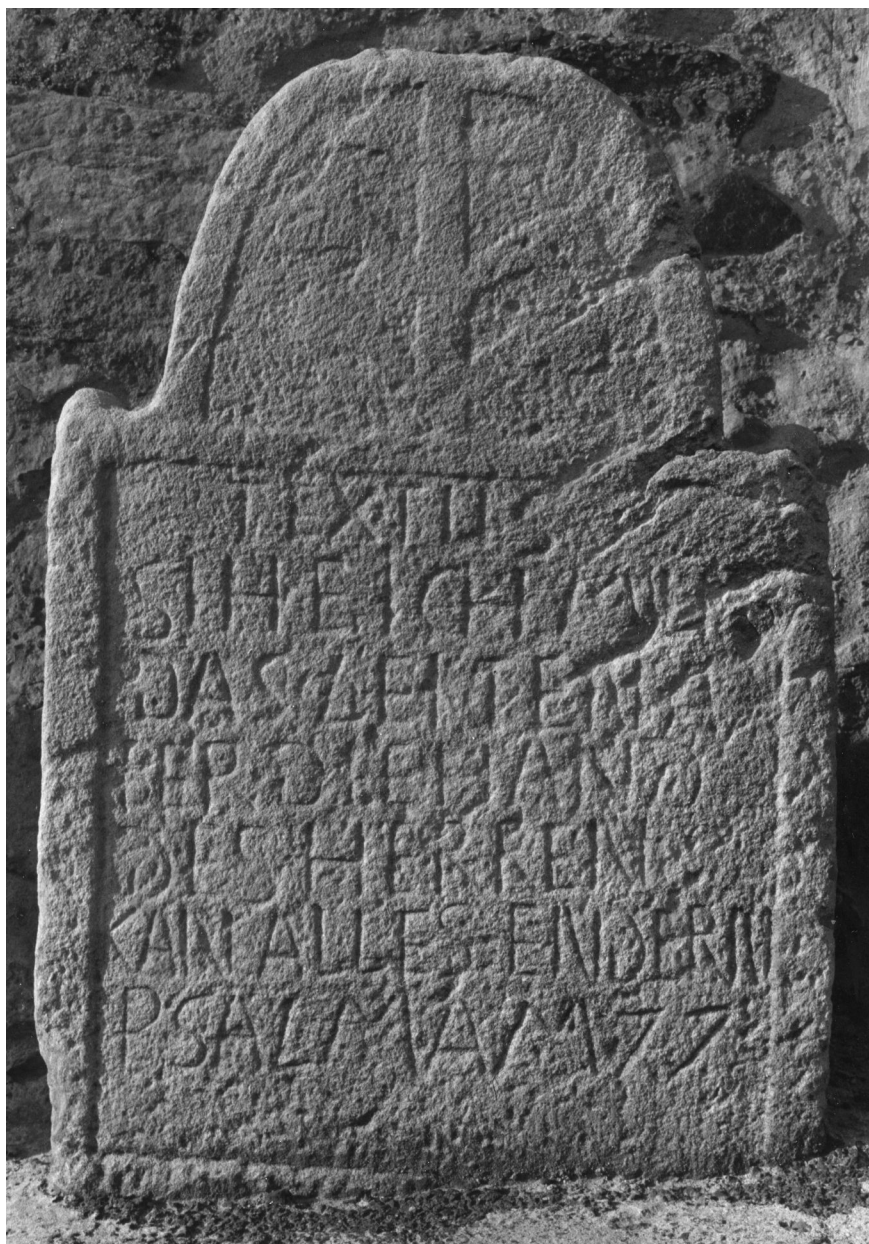 SIHE ICH
DAS LEITEN A
BER DIE HAND
DES HERREN
KAN ALLES ENDERN
PSALM AM 77